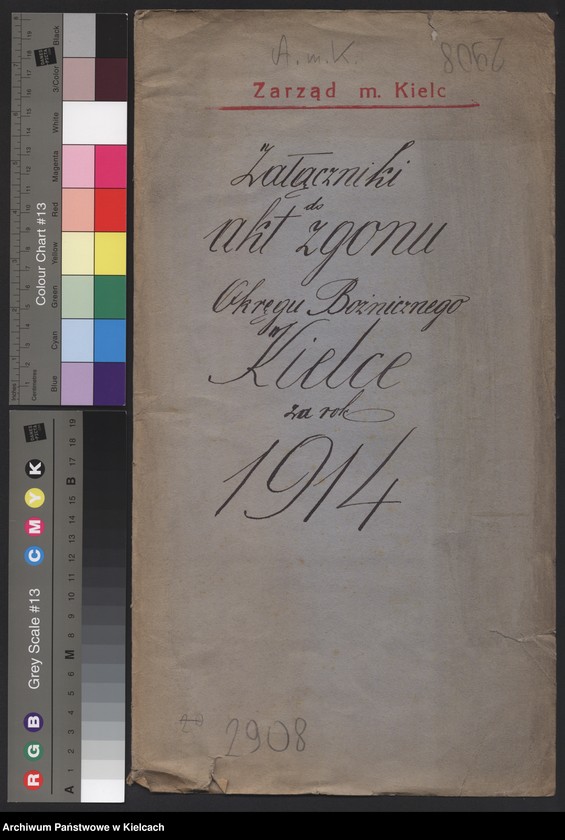 A.m.K.
2908
Zarząd m. Kielc
Załączniki
do
akt zgonu
Okręgu Bożnicznego
Kielce
za rok
1914
20 2908
Colour Chart #13
Blue Cyan Green Yellow Red Magenta White 3/Color Black
Inches
Centimetres
Grey Scale #13
R G B C M Y K
A 1 2 3 4 5 6 M 8 9 10 11 12 13 14 15 B 17 18 19
Archiwum Państwowe w Kielcach